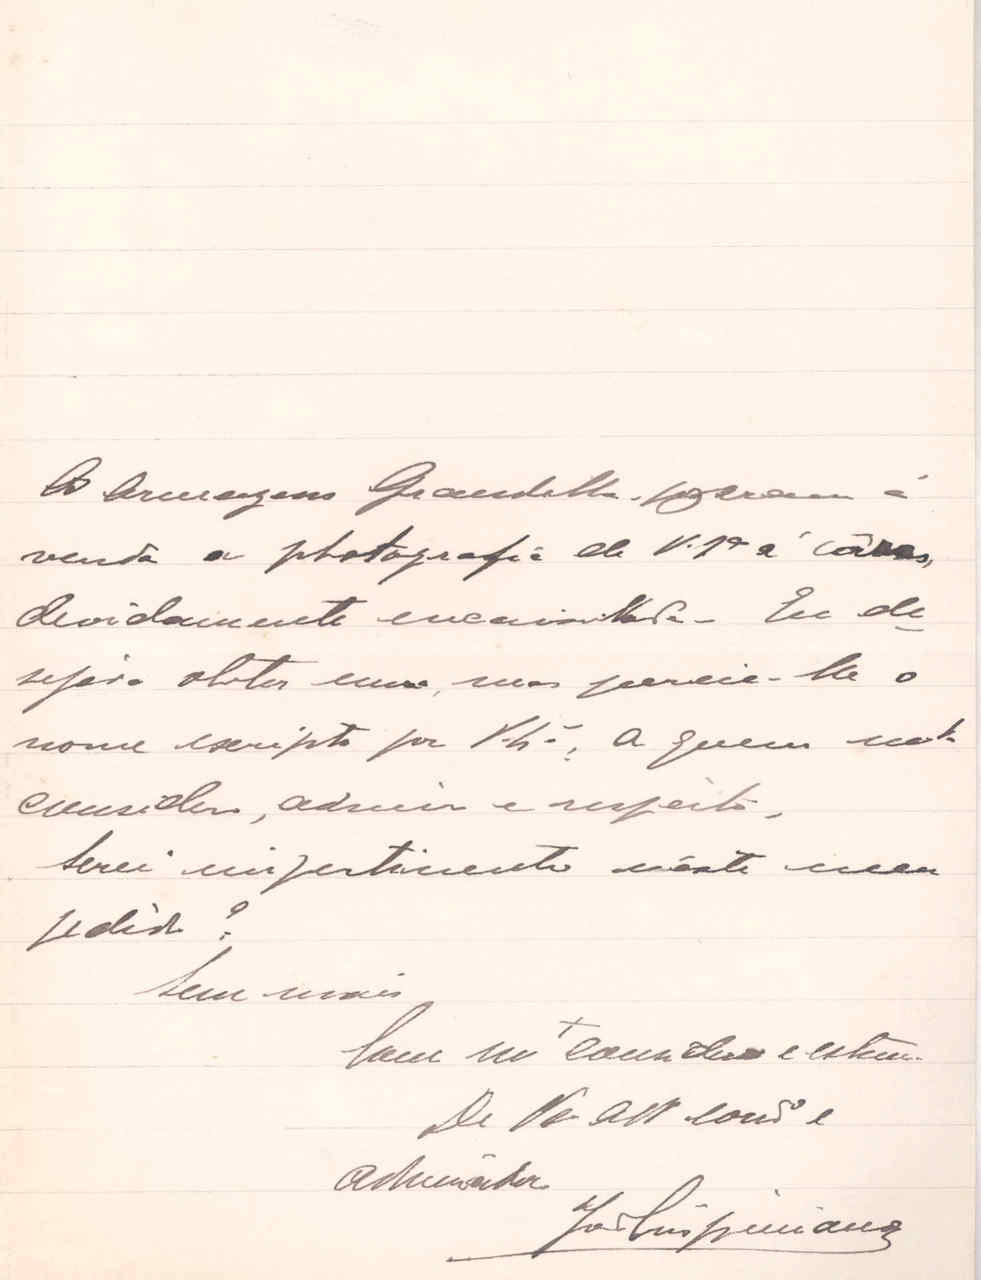 Os Armazens Grandella pozeram á
venda a photografia de V. Exª a côres,
devidamente encaixilhada. Eu de-
sejava obter uma, mas parecia-lhe o
nome escripto por V. Exª, a quem mto
considero, admiro e respeito.
Serei impertinente néste meu
pedido?
Sem mais
Com mta consideração e estima
De V. Att
admirador
José Crispiniano